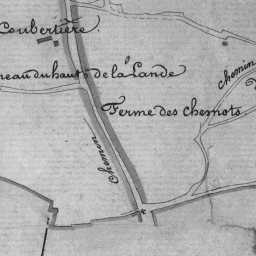 Coubertière.
neau du haut de la Lande
Ferme des chesnots
chemin
Chemin